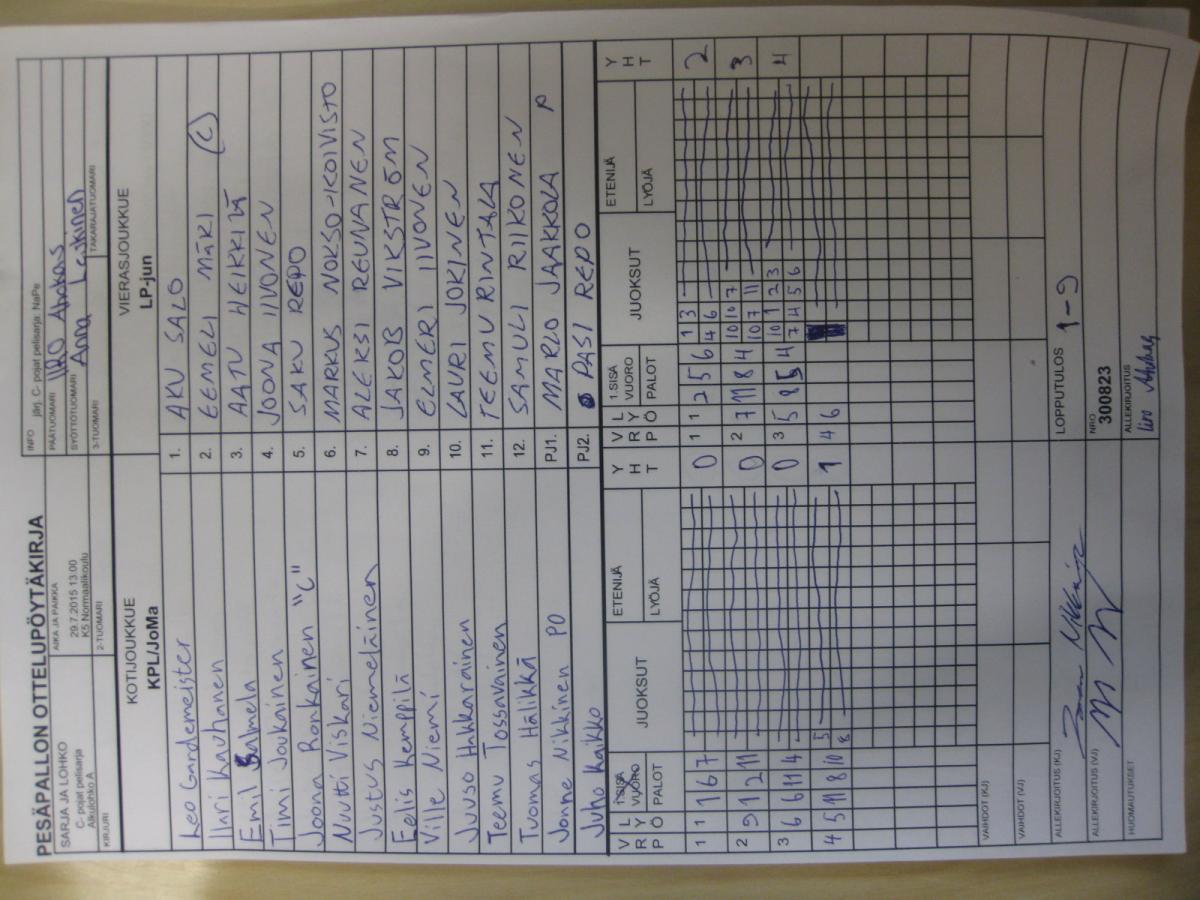 PESÄPALLON OTTELUPÖYTÄKIRJA
SARJA JA LOHKO
C- pojat pelisarja
Alkulohko A
AIKA JA PAIKKA
29.7.2015 13:00
K5 Normaalikoulu
INFO järj. C- pojat pelisarja: NaPe
PÄÄTUOMARI IIRO Ahokas
SYÖTTÖTUOMARI Anna Laitinen
KIRJURI
2-TUOMARI
3-TUOMARI
TAKARAJATUOMARI
KOTIJOUKKUE
KPL/JoMa
VIERASJOUKKUE
LP-jun
Leo Gardemeister 1. AKU SALO
Ilari Kauhanen 2. EEMELI MÄKI (C)
Emil Salmela 3. AATU HEIKKILÄ
Timi Joukainen 4. JOONA IIVONEN
Joona Ronkainen "C" 5. SAKU REPO
Nuutti Viskari 6. MARKUS NOKSO-KOIVISTO
Justus Niemeläinen 7. ALEKSI REUNANEN
Eelis Kemppilä 8. JAKOB VIKSTRÖM
Ville Niemi 9. ELMERI IIVONEN
Juuso Hakkarainen 10. LAURI JOKINEN
Teemu Tossavainen 11. TEEMU RINTALA
Tuomas Hälikkä 12. SAMULI RIIKONEN
Jonne Nikkinen PO PJ1. MARLO JAAKKOLA P
Juho Kaikko PJ2. PASI REPO
V R P L Y Ö 1.SISÄ VUORO PALOT JUOKSUT ETENIJÄ LYÖJÄ Y H T V R P L Y Ö 1.SISÄ VUORO PALOT JUOKSUT ETENIJÄ LYÖJÄ Y H T
1 1 1 6 7 0 1 1 2 5 6 1 3 2
4 6
2 9 1 2 11 0 2 7 11 8 4 10 10 7 3
10 7 11
3 6 6 11 4 0 3 5 8 4 10 1 2 3 4
7 4 5 6
4 5 11 8 10 5 1 4 6
8
VAIHDOT (KJ)
VAIHDOT (VJ)
ALLEKIRJOITUS (KJ)
LOPPUTULOS 1-9
ALLEKIRJOITUS (VJ)
NRO
300823
HUOMAUTUKSET
ALLEKIRJOITUS
Iiro Ahokas